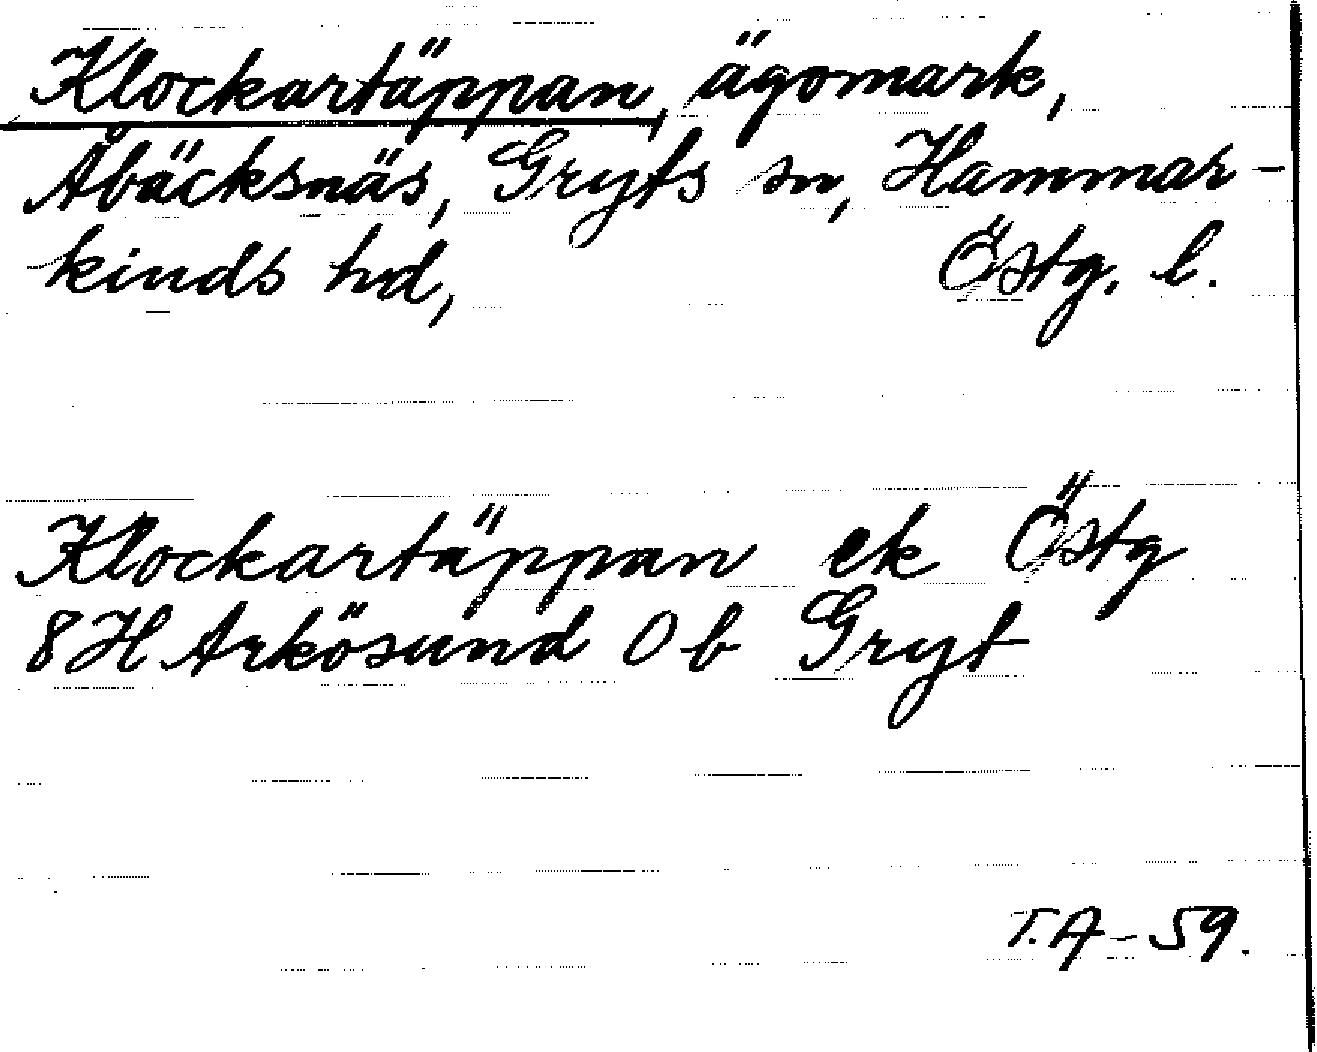 Klockartäppan, ägomark,
Åbäcksnäs, Gryts sn, Hammar-
kinds hd, Östg. l.
Klockartäppan ek Östg
8H Arkösund 0b Gryt
T.A-59.